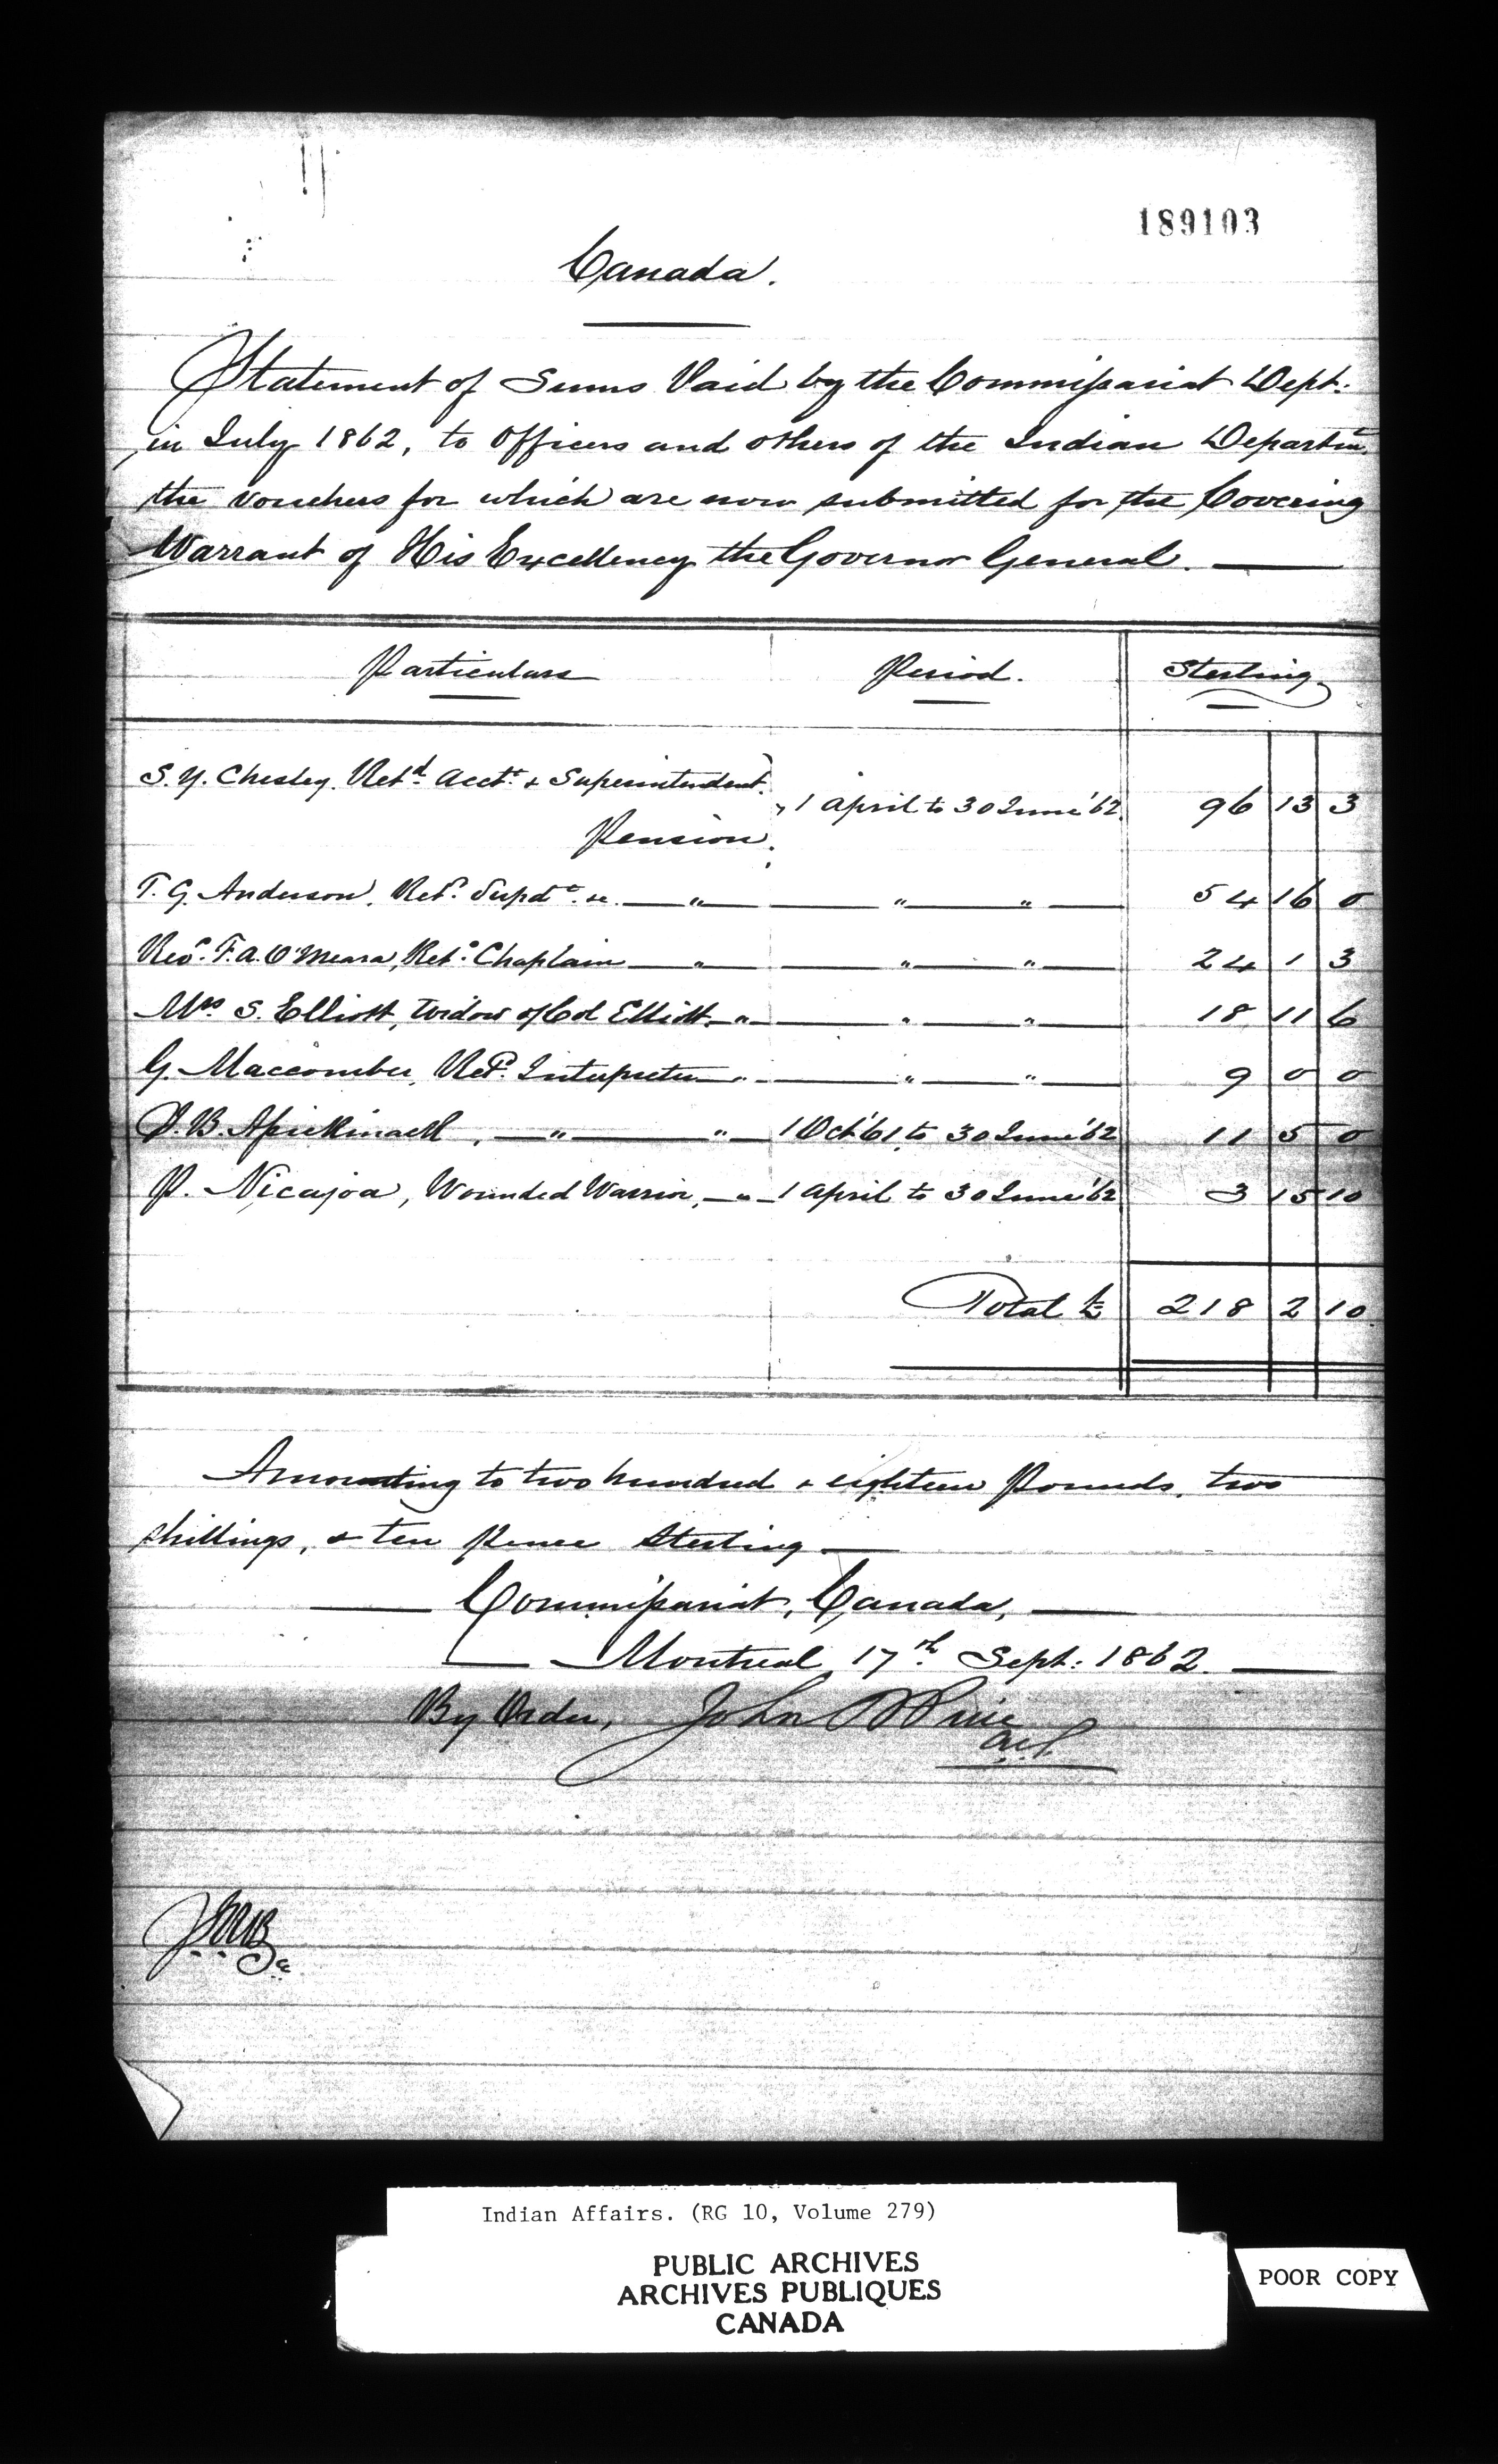 189103
Canada.
Statement of Sums Paid by the Commissariat Dept:
in July 1862, to Officers and others of the Indian Departmt.
the vouchers for which are now submitted for the Covering
Warrant of His Excellency the Governor General.
Particulars Period. Sterling
S. Y. Chesley. Retd. Acct. & Superintendent.
Pension. 1 April to 30 June '62. 96 13 3
T. G. Anderson. Retd. Supdt. &c. " " " 54 16 0
Revd. F. A. O'Meara, Retd. Chaplain " " " 24 1 3
Mrs S. Elliott, Widow of Col Elliott " " " 18 11 6
G. Maccomber, Retd. Interpreter " " " 9 0 0
J. B. " " 1 Oct '61, to 30 June '62 11 5 0
P. Nicajoa, Wounded Warrior, " 1 April to 30 June '62 3 15 10
Total £ 218 2 10
Amounting to two hundred & eighteen Pounds, two
shillings, & ten Pence Sterling
Commissariat, Canada,
Montreal 17th Sept: 1862.
By Order, John
Indian Affairs. (RG 10, Volume 279)
PUBLIC ARCHIVES
ARCHIVES PUBLIQUES
CANADA
POOR COPY